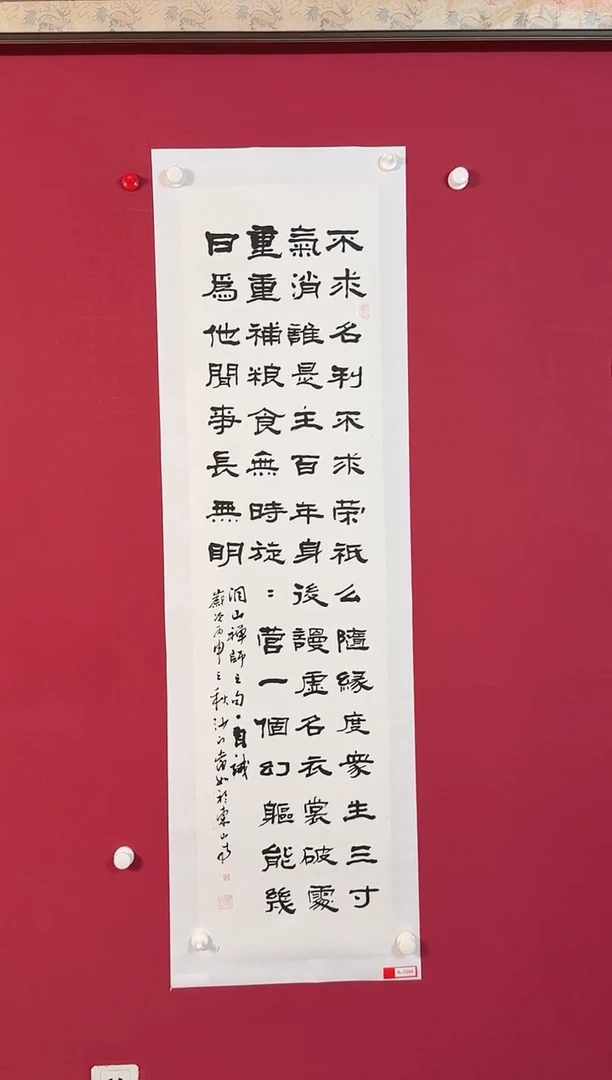 不求名利不求荣祇么隨緣度衆生三寸
氣消誰是主百年身後謾虛名衣裳破處
重重補粮食無時旋：营一個幻軀能幾
日爲他閒事長無明
洞山禪師之句·自誡
歲次丙申之秋沙門 於東山